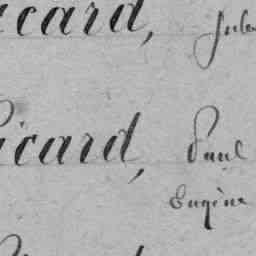 ccard, Jules
icard, Paul
Eugène